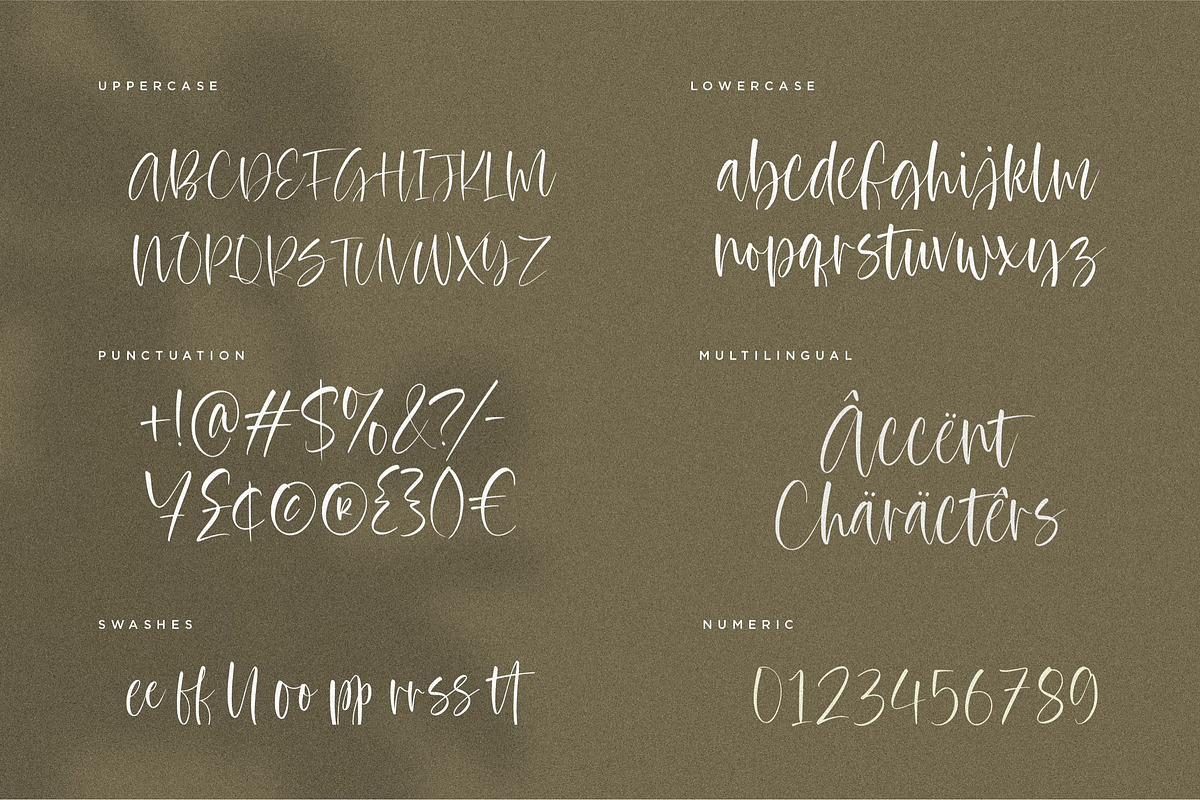 UPPERCASE
ABCDEFGHIJKLM
NOPQRSTUVWXYZ
LOWERCASE
abcdefghijklm
nopqrstuvwxyz
PUNCTUATION
+!@#$%&?/-
¥£¢©®{}()€
MULTILINGUAL
Âccënt
Chäräctêrs
SWASHES
ee ff ll oo pp rr ss tt
NUMERIC
0123456789